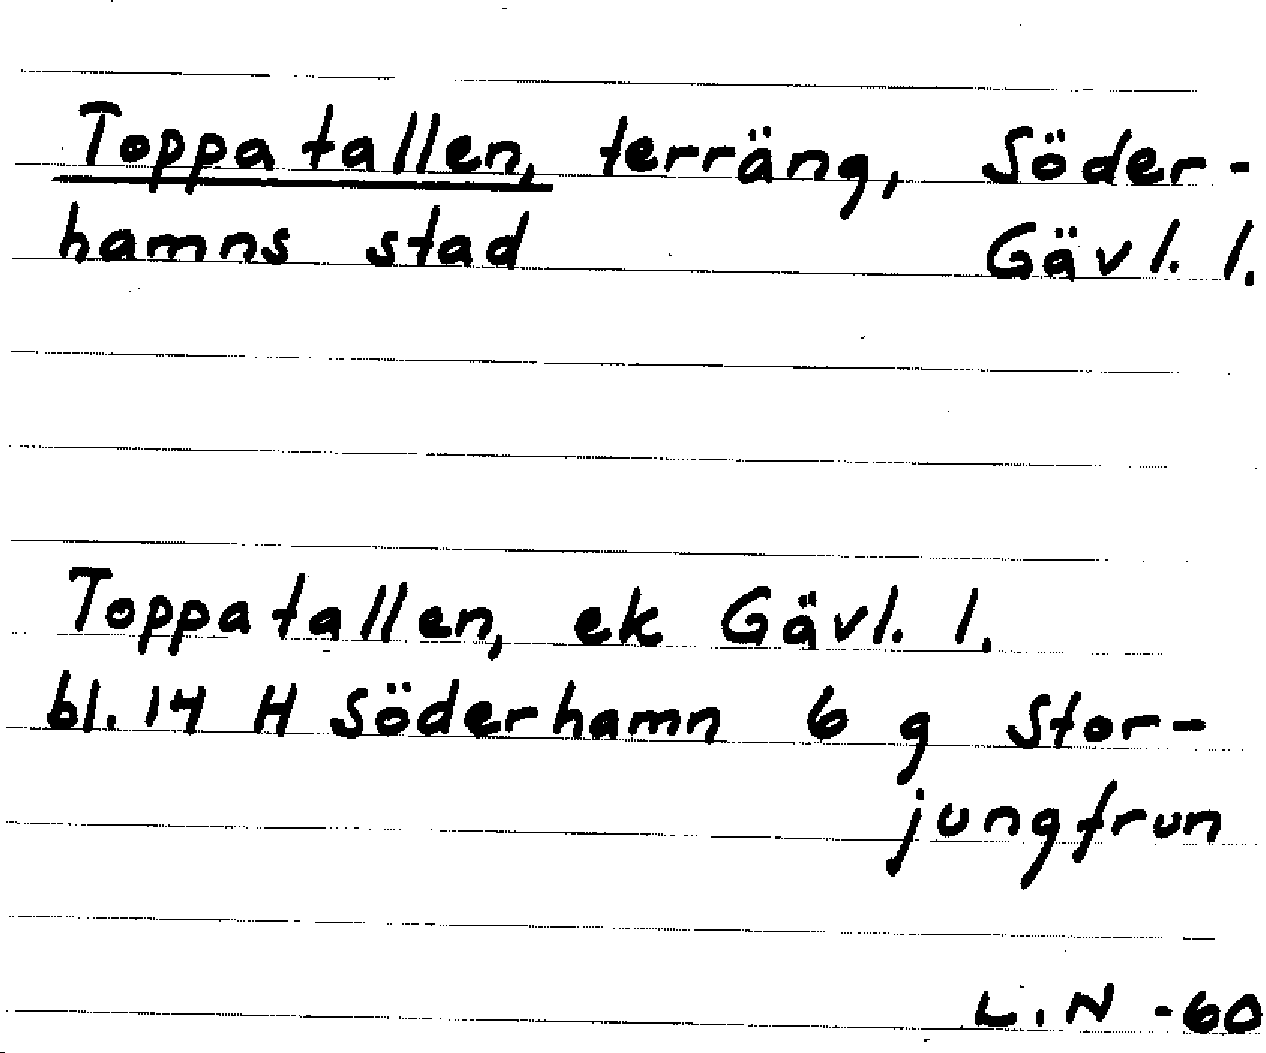 Toppatallen, terräng, Söder-
hamns stad Gävl. l.
Toppatallen, ek Gävl. l.
bl. 14 H Söderhamn 6 g Stor-
jungfrun
L. N -60